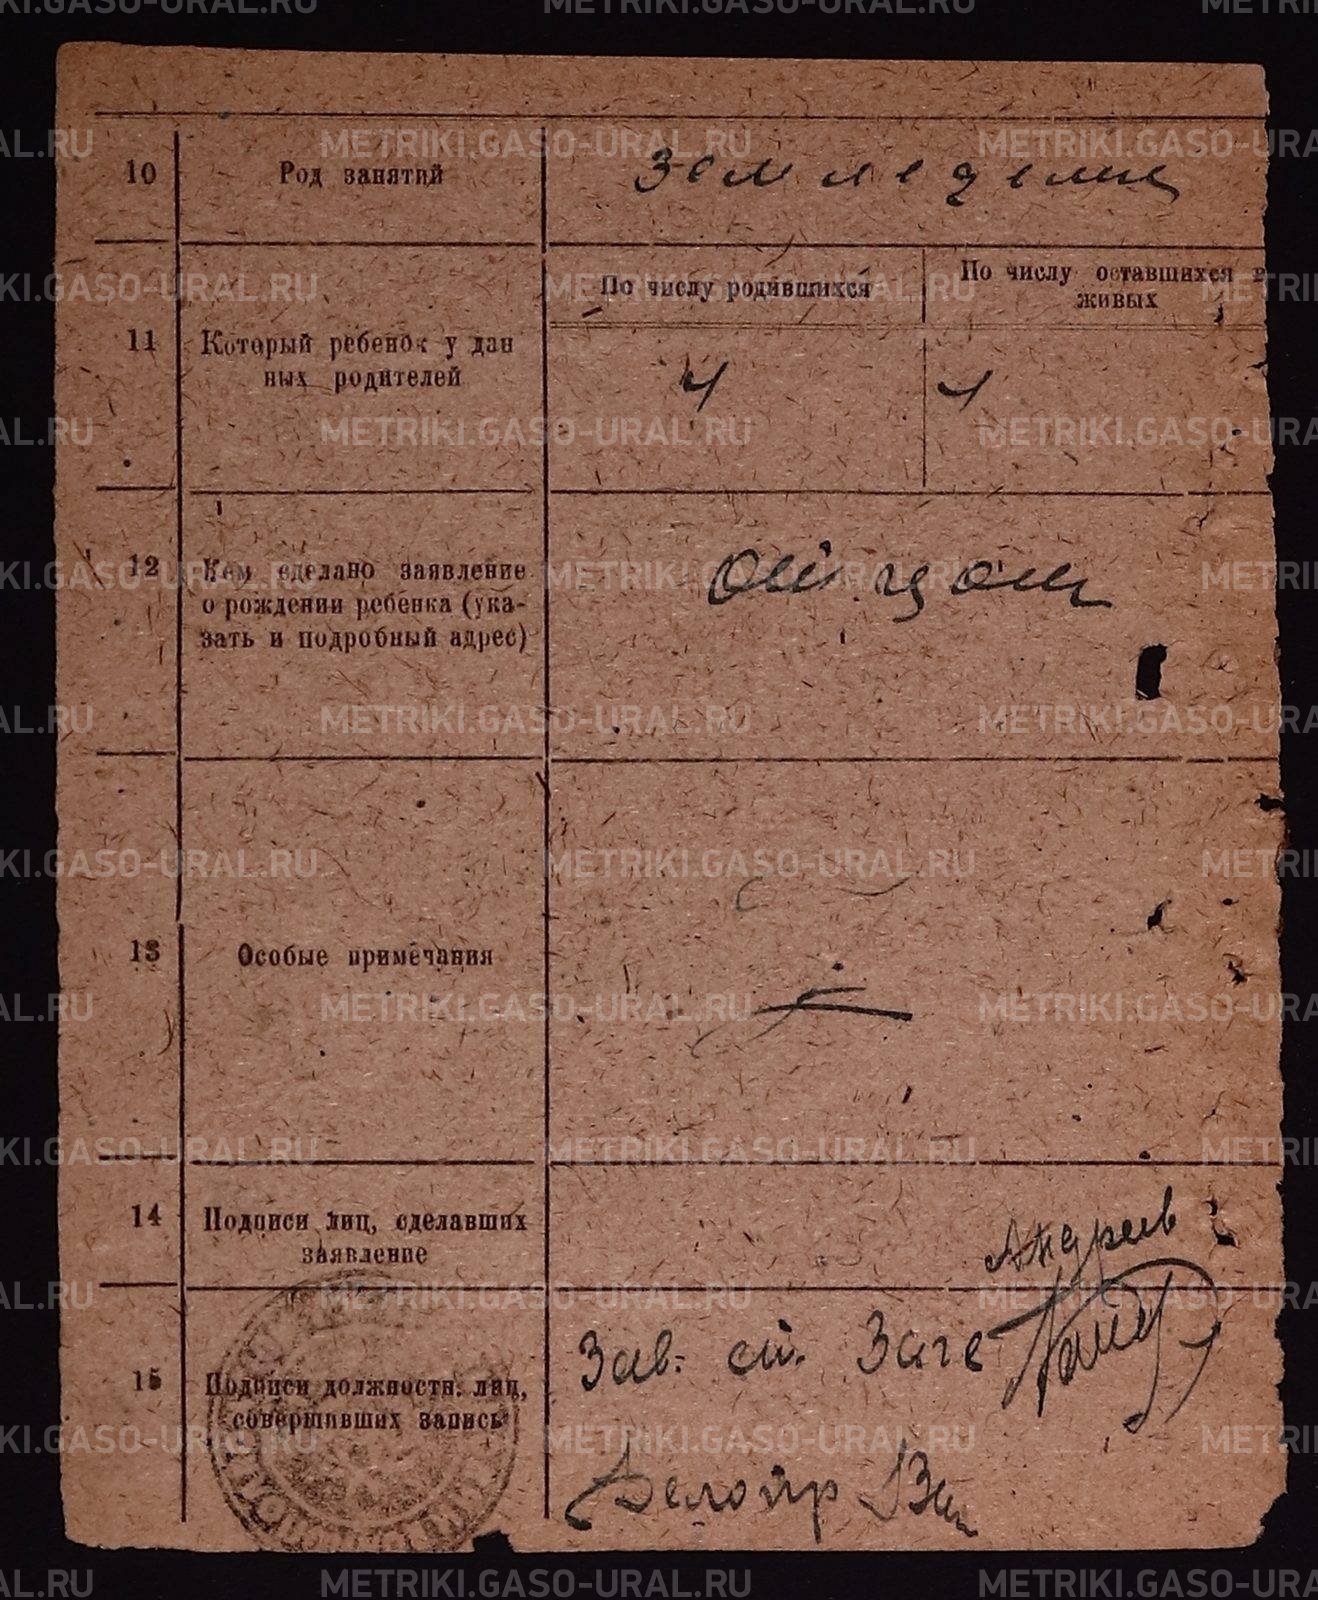 10
Род занятий
земледелие
11
Который ребенок у дан
ных родителей
По числу родившихся
По числу оставшихся в
живых
4
12
Кем сделано заявление
о рождении ребенка (ука-
зать и подробный адрес)
отцом
13
Особые примечания
14
Подписи лиц, сделавших
заявление
Андреев
15
Подписи должностн. лиц,
совершивших запись
Зав. ст. Загс
Делопр
METRIKI.GASO-URAL.RU